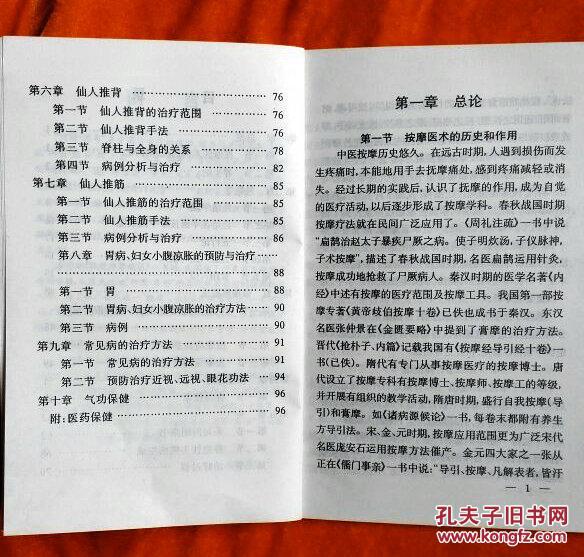 第六章 仙人推背 …………………… 76
第一节 仙人推背的治疗范围 …………… 76
第二节 仙人推背手法 …………………… 76
第三节 脊柱与全身的关系 ……………… 78
第四节 病例分析与治疗 ………………… 82
第七章 仙人推筋 …………………… 85
第一节 仙人推筋的治疗范围 …………… 85
第二节 仙人推筋手法 …………………… 85
第三节 病例分析与治疗 ………………… 86
第八章 胃病、妇女小腹凉胀的预防与治疗 ……
…………………… 88
第一节 胃 …………………… 88
第二节 胃病、妇女小腹凉胀的治疗方法 … 90
第三节 病例 …………………… 90
第九章 常见病的治疗方法 …………… 91
第一节 常见病的治疗方法 …………… 91
第二节 预防治疗近视、远视、眼花功法 … 94
第十章 气功保健 …………………… 96
附:医药保健 …………………… 96
第一章 总论
第一节 按摩医术的历史和作用
中医按摩历史悠久。在远古时期,人遇到损伤而发
生疼痛时,本能地用手去抚摩痛处,感到疼痛减轻或消
失。经过长期的实践后,认识了抚摩的作用,成为自觉
的医疗活动,以后逐步形成了按摩学科。春秋战国时期
按摩疗法就在民间广泛应用了。《周礼注疏》一书中说
“扁鹊治赵太子暴疾尸厥之病。使子明炊汤,子仪脉神,
子术按摩”,描述了春秋战国时期,名医扁鹊运用针灸,
按摩成功地抢救了尸厥病人。秦汉时期的医学名著《内
经》中述有按摩的医疗范围及按摩工具。我国第一部按
摩专著《黄帝歧伯按摩十卷》已佚也成书于秦汉。东汉
名医张仲景在《金匮要略》中提到了膏摩的治疗方法。
晋代《抢朴子、内篇》记载我国有《按摩经导引经十卷》一
书(已佚)。隋代有专门从事按摩医疗的按摩博士。唐
代设立了按摩专科有按摩博士、按摩师、按摩工的等级,
并开展有组织的教学活动,隋唐时期,盛行自我按摩(导
引)和膏摩。如《诸病源候论》一书,每卷末都附有养生
方导引法。宋、金、元时期,按摩应用范围更为广泛宋代
名医庞安石运用按摩方法催产。金元四大家之一张从
正在《儒门事亲》一书中说:“导引、按摩、凡解表者,皆汗
— 1 —
孔夫子旧书网
www.kongfz.com